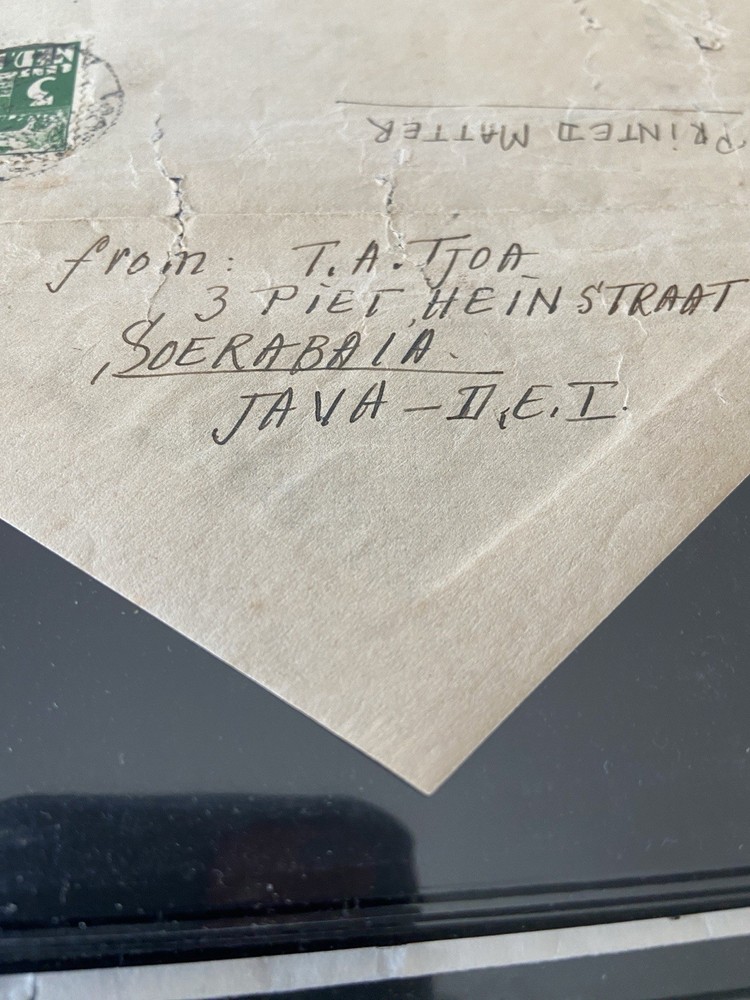 PRINTED MATTER
from: T. A. TJOA
3 PIET HEINSTRAAT
SOERABAIA.
JAVA - D.E.I.